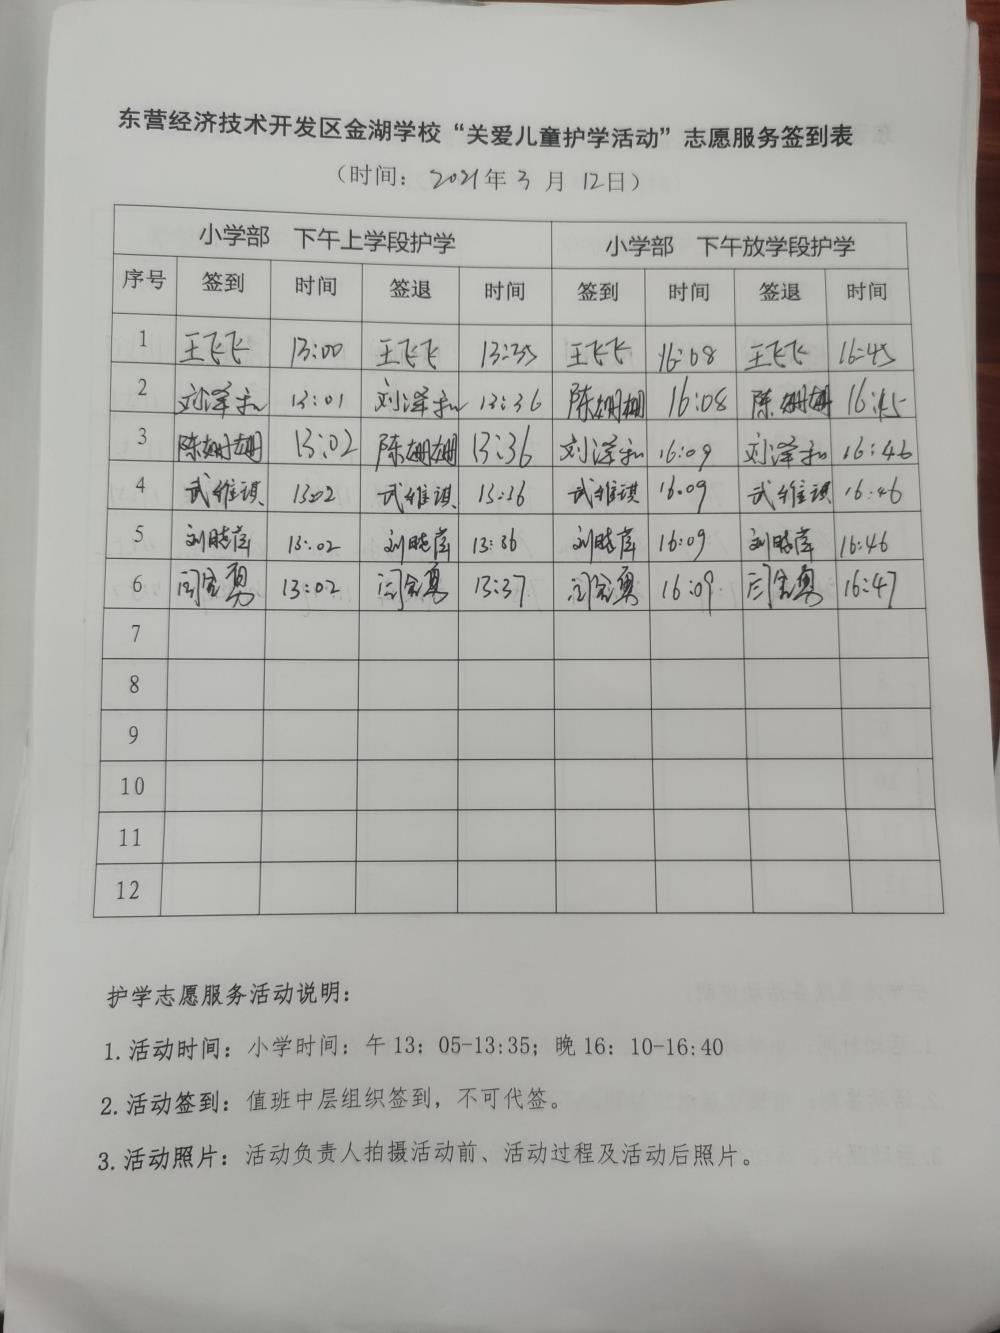 东营经济技术开发区金湖学校“关爱儿童护学活动”志愿服务签到表
（时间：2021年3月12日）
小学部 下午上学段护学 小学部 下午放学段护学
序号 签到 时间 签退 时间 签到 时间 签退 时间
1 王飞飞 13:00 王飞飞 13:35 王飞飞 16:08 王飞飞 16:45
2 刘泽和 13:01 刘泽和 13:36 陈姗姗 16:08 陈姗姗 16:45
3 陈姗姗 13:02 陈姗姗 13:36 刘泽和 16:09 刘泽和 16:46
4 武维琪 13:02 武维琪 13:36 武维琪 16:09 武维琪 16:46
5 刘晓萍 13:02 刘晓萍 13:36 刘晓萍 16:09 刘晓萍 16:46
6 13:02 13:37 16:09 16:47
7
8
9
10
11
12
护学志愿服务活动说明：
1.活动时间：小学时间：午13：05-13:35；晚16：10-16:40
2.活动签到：值班中层组织签到，不可代签。
3.活动照片：活动负责人拍摄活动前、活动过程及活动后照片。